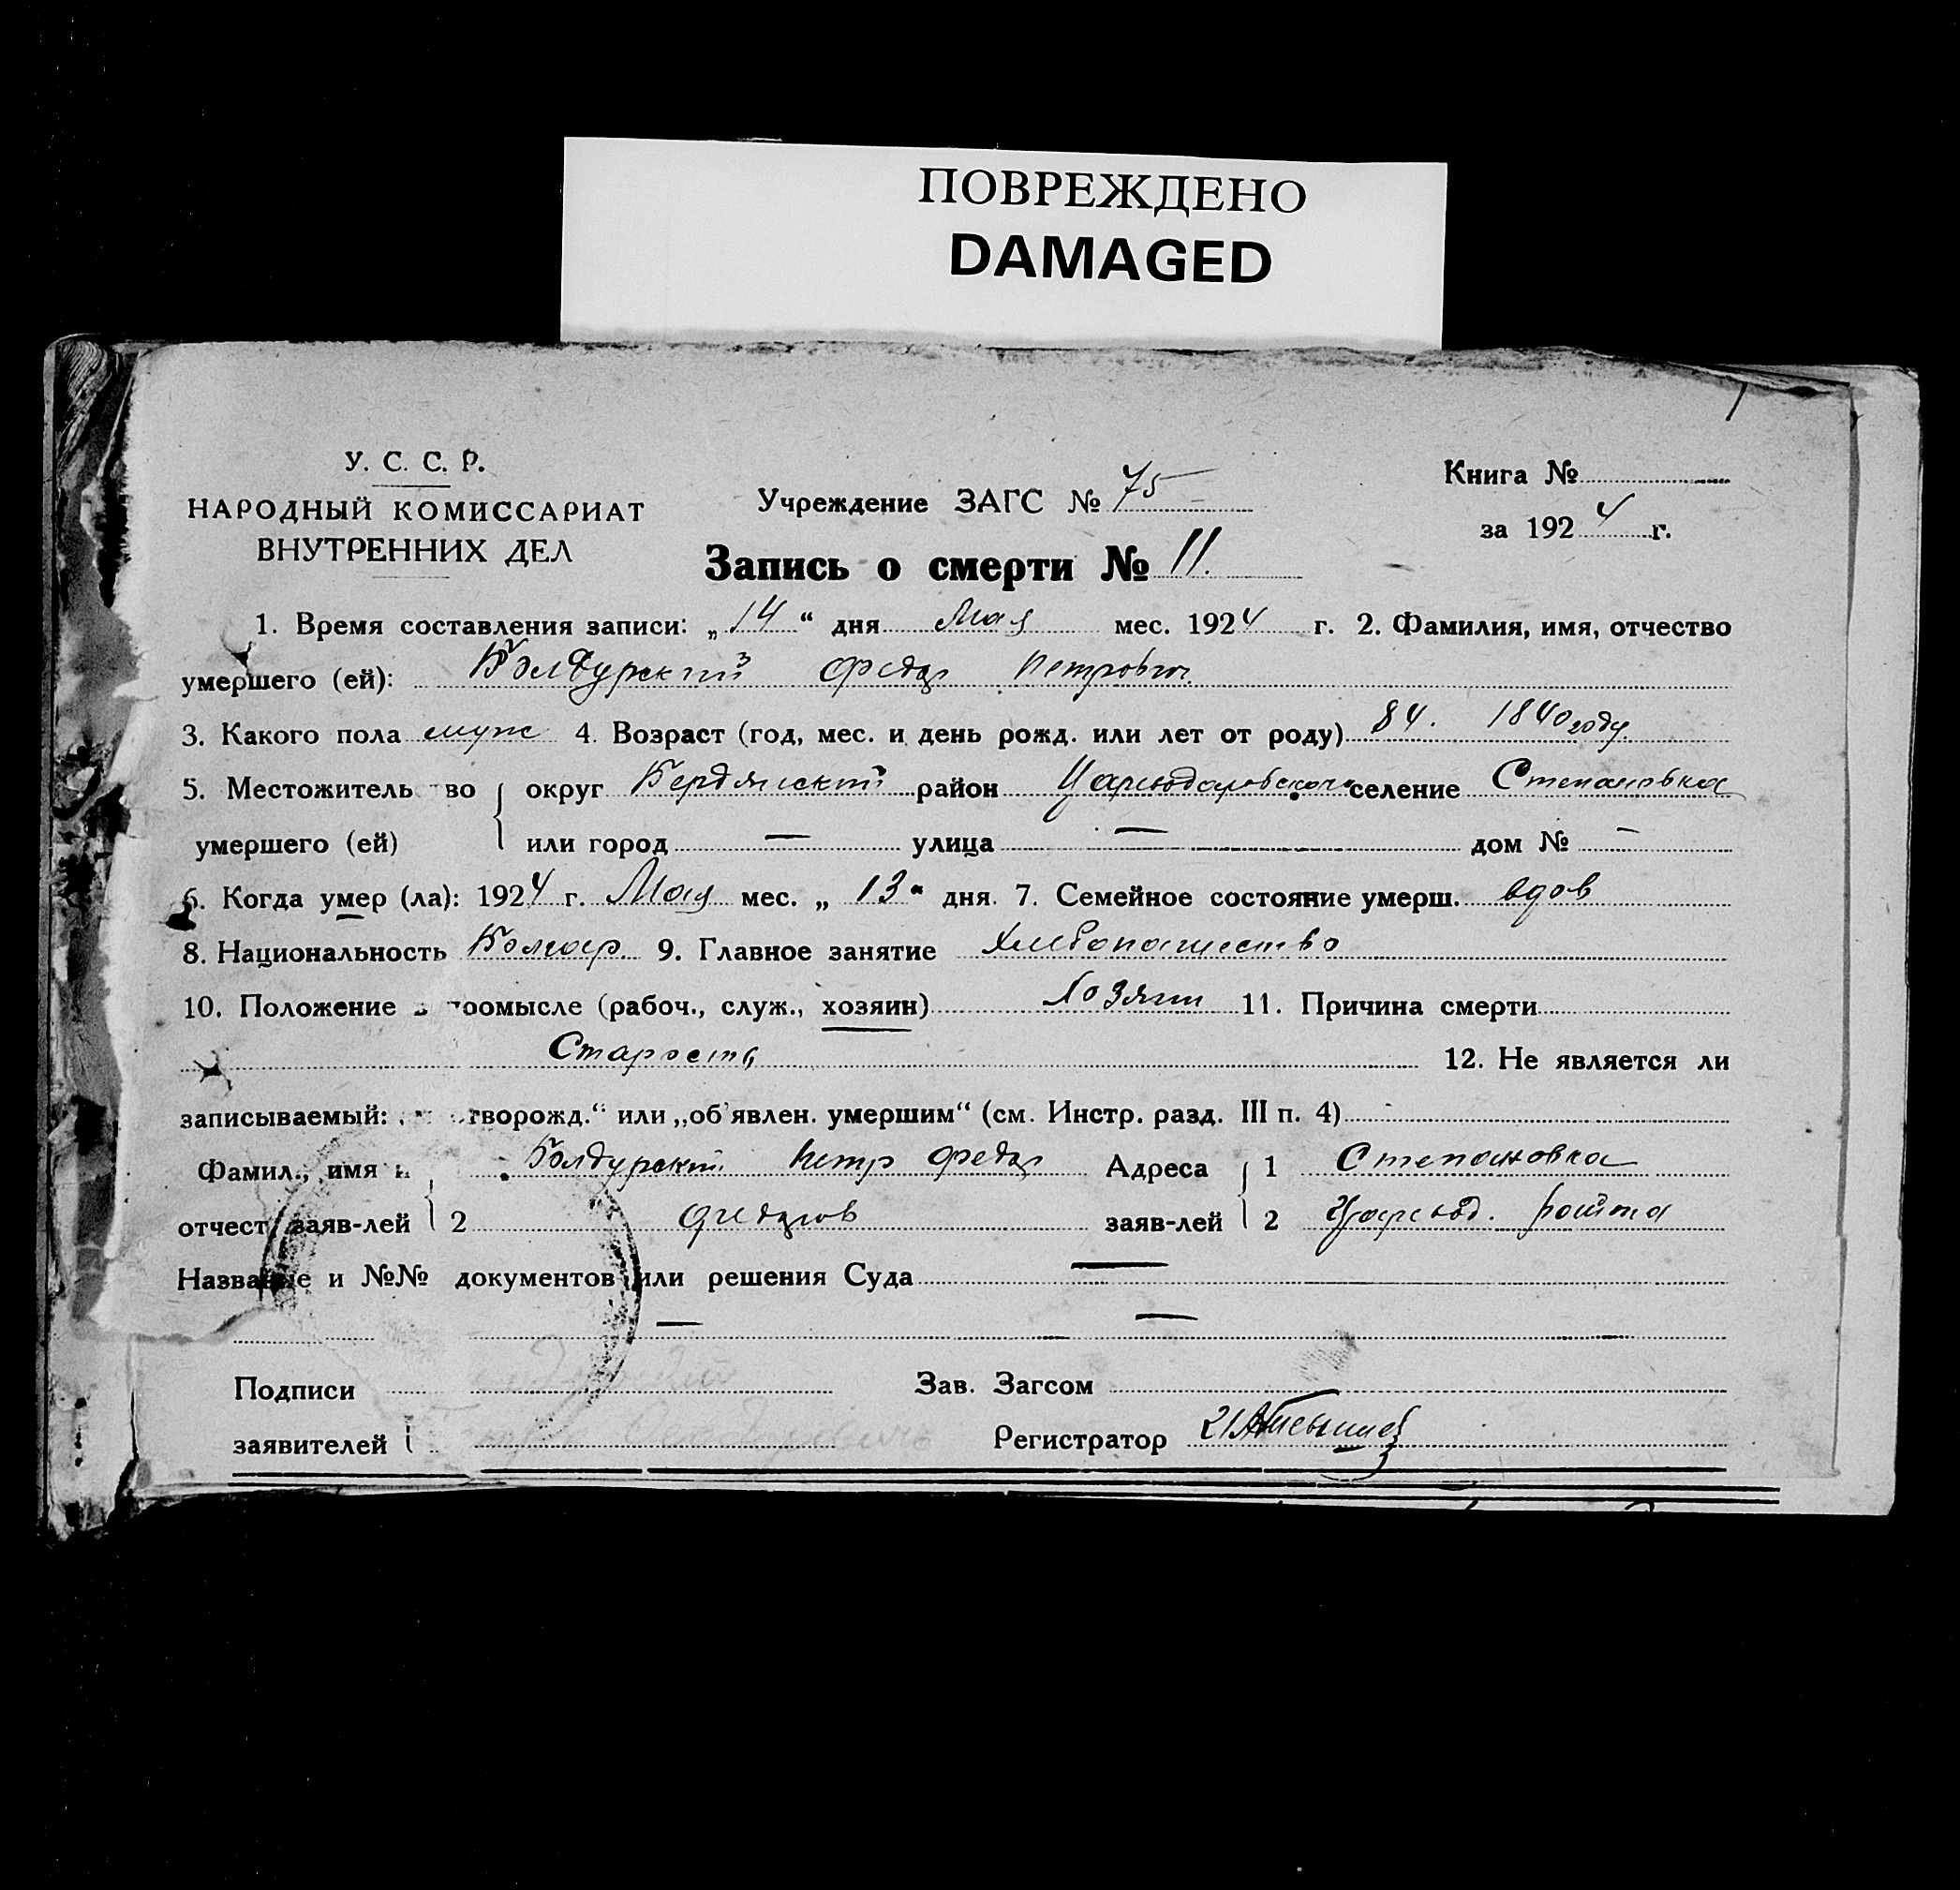 ПОВРЕЖДЕНО
DAMAGED
У. С. С. Р.
НАРОДНЫЙ КОМИССАРИАТ
ВНУТРЕННИХ ДЕЛ
Учреждение ЗАГС № 75
Книга №
за 1924 г.
Запись о смерти № 11.
1. Время составления записи: „14“ дня Мая мес. 1924 г. 2. Фамилия, имя, отчество
умершего (ей): Болдурский Федор Петрович
3. Какого пола муж 4. Возраст (год, мес. и день рожд. или лет от роду) 84. 1840 году.
5. Местожитель во округ Бердянский район Цареводаровского селение Степановка
умершего (ей) или город — улица — дом № —
6. Когда умер (ла): 1924 г. Мая мес. „13“ дня. 7. Семейное состояние умерш. вдов
8. Национальность Болгар. 9. Главное занятие Хлебопашество
10. Положение в промысле (рабоч., служ., хозяин) Хозяин 11. Причина смерти
Старость 12. Не является ли
записываемый: творожд.“ или „об'явлен. умершим“ (см. Инстр. разд. III п. 4)
Фамил., имя и Болдурский Петр Федор Адреса 1 Степановка
отчест. заяв-лей 2 Федоров заяв-лей 2 Царевод. района
Название и №№ документов или решения Суда —
— —
Подписи Зав. Загсом
заявителей Регистратор